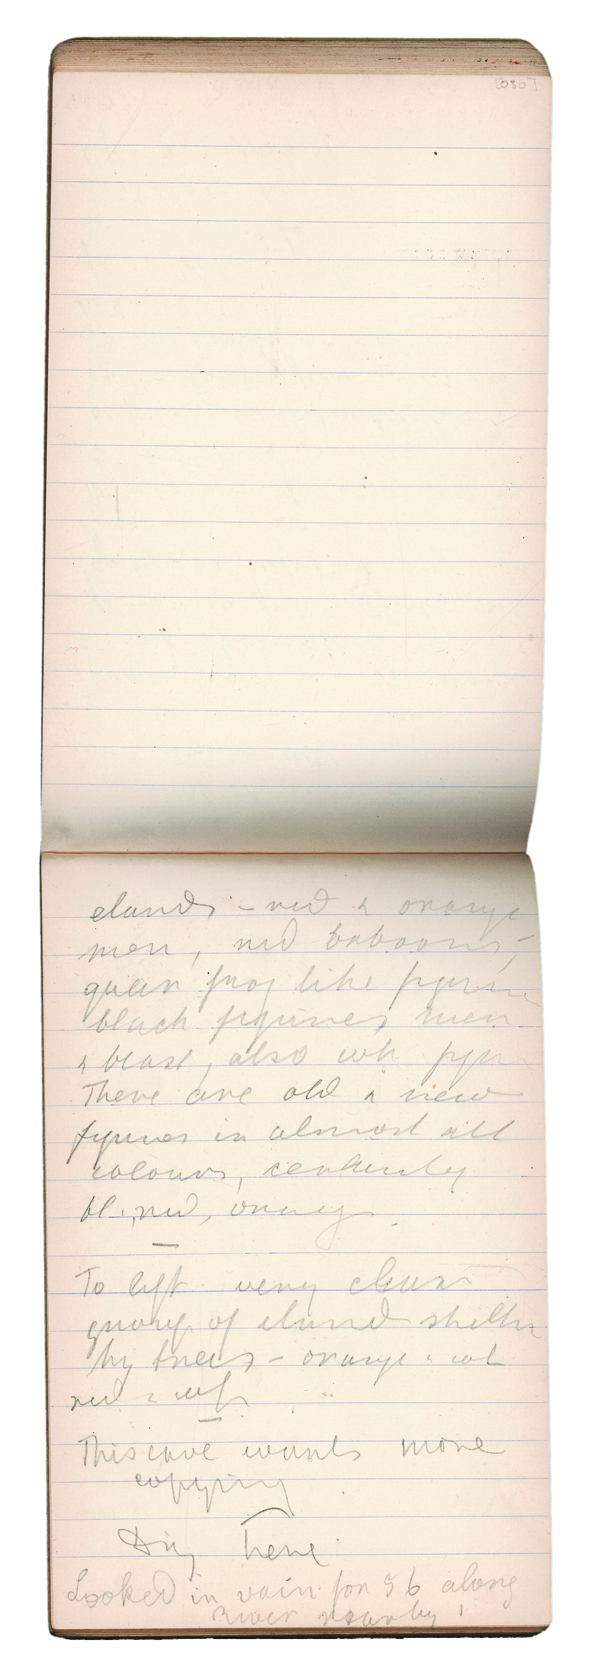 [030]
elands - red & orange
men, red baboons,
queer frog like figures
black figures men
& beast, also wh. figu
There are old & new
figures in almost all
colours, certainly
bl., red, orange.
To left very clear
group of eland shelter
by trees - orange & wh
red & wh
This cave wants more
copying
Dig here
Looked in vain for 56 along
River nearby